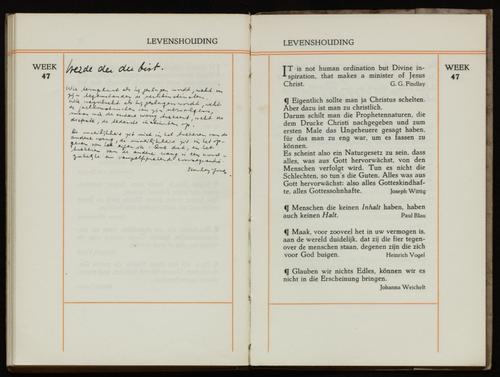 LEVENSHOUDING
WEEK
47
Werde der du bist.
Wie terugslaat als hij geslagen wordt, wekt in
zijn tegenstander de
als hij geslagen wordt, wekt
de van zijn
maar wie de andere wang toekeert, wekt de
De moeilijkheid zit niet in het toekeren van de
andere wang, de moeilijkheid zit in het
van het
van de andere wang
Stanley Jones
LEVENSHOUDING
WEEK
47
IT is not human ordination but Divine in-
spiration, that makes a minister of Jesus
Christ. G. G. Findlay
¶ Eigentlich sollte man ja Christus schelten.
Aber dazu ist man zu christlich.
Darum schilt man die Prophetennaturen, die
dem Drucke Christi nachgegeben und zum
ersten Male das Ungeheuere gesagt haben,
für das man zu eng war, um es fassen zu
können.
Es scheint also ein Naturgesetz zu sein, dass
alles, was aus Gott hervorwächst, von den
Menschen verfolgt wird. Tun es nicht die
Schlechten, so tun's die Guten. Alles was aus
Gott hervorwächst: also alles Gotteskindhaf-
te, alles Gottessohnhafte. Joseph Wittig
¶ Menschen die keinen Inhalt haben, haben
auch keinen Halt. Paul Blau
¶ Maak, voor zooveel het in uw vermogen is,
aan de wereld duidelijk, dat zij die fier tegen-
over de menschen staan, degenen zijn die zich
voor God buigen. Heinrich Vogel
¶ Glauben wir nichts Edles, können wir es
nicht in die Erscheinung bringen.
Johanna Weichelt